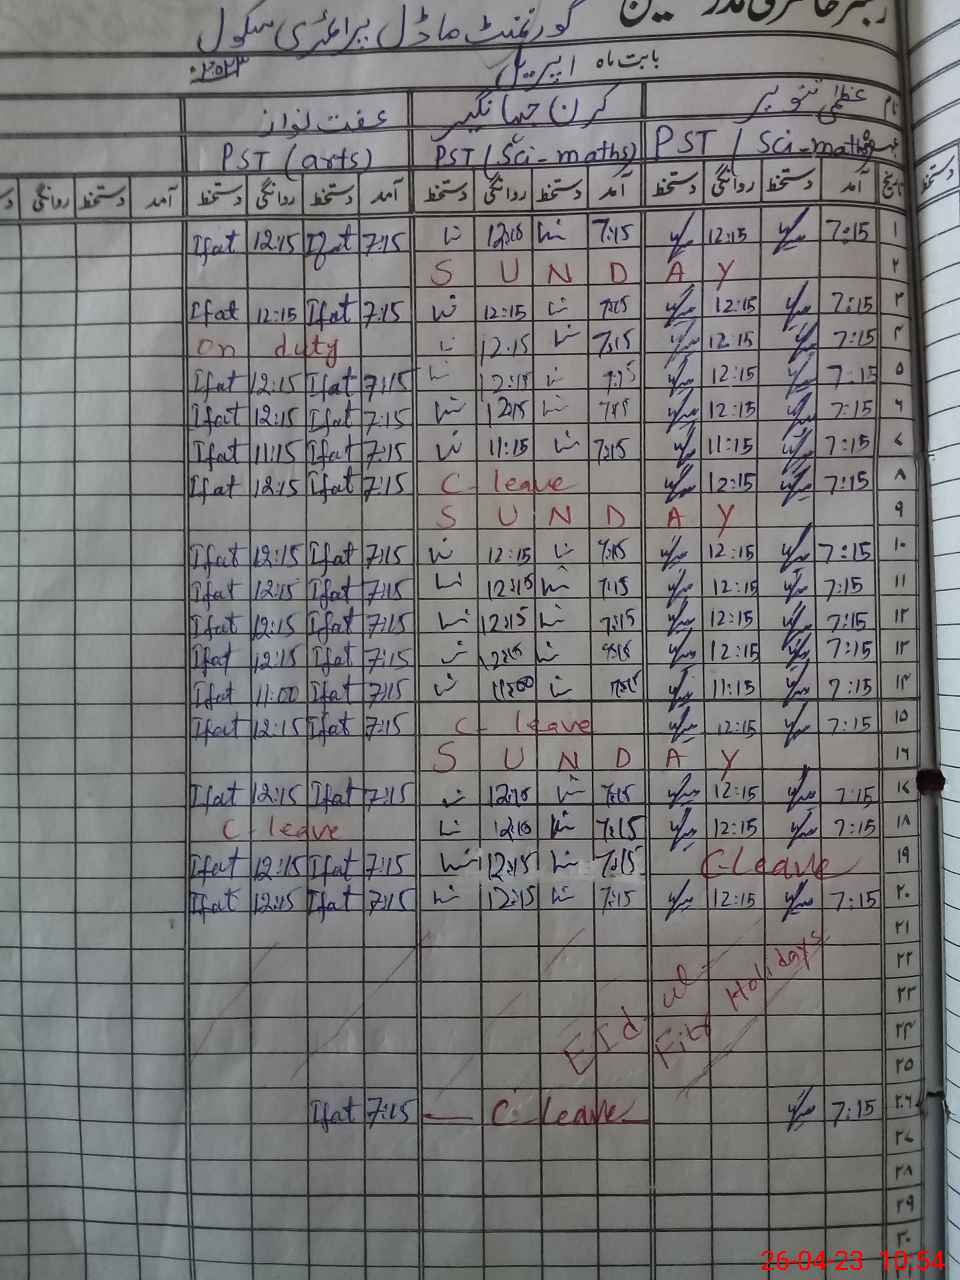 رجسٹر حاضری مدرسین
گورنمنٹ ماڈل پرائمری سکول
بابت ماہ اپریل ۲۰۲۳
نام عظمیٰ تنویر کرن جہانگیر عفت نواز
PST (Sci-maths) PST (Sci-maths) PST (arts)
تاریخ آمد دستخط روانگی دستخط آمد دستخط روانگی دستخط آمد دستخط روانگی دستخط آمد دستخط روانگی
۱ 7:15 12:15 7:15 12:15 7:15 Ifat 12:15 Ifat
۲ SUNDAY
۳ 7:15 12:15 7:15 12:15 7:15 Ifat 12:15 Ifat
۴ 7:15 12:15 7:15 12:15 on duty
۵ 7:15 12:15 7:15 12:15 7:15 Ifat 12:15 Ifat
۶ 7:15 12:15 7:15 12:15 7:15 Ifat 12:15 Ifat
۷ 7:15 11:15 7:15 11:15 7:15 Ifat 11:15 Ifat
۸ 7:15 12:15 C-leave 7:15 Ifat 12:15 Ifat
۹ SUNDAY
۱۰ 7:15 12:15 7:15 12:15 7:15 Ifat 12:15 Ifat
۱۱ 7:15 12:15 7:15 12:15 7:15 Ifat 12:15 Ifat
۱۲ 7:15 12:15 7:15 12:15 7:15 Ifat 12:15 Ifat
۱۳ 7:15 12:15 7:15 12:15 7:15 Ifat 12:15 Ifat
۱۴ 7:15 11:15 7:15 11:00 7:15 Ifat 11:00 Ifat
۱۵ 7:15 12:15 C-leave 7:15 Ifat 12:15 Ifat
۱۶ SUNDAY
۱۷ 7:15 12:15 7:15 12:15 7:15 Ifat 12:15 Ifat
۱۸ 7:15 12:15 7:15 12:15 C-leave
۱۹ C-leave 7:15 12:15 7:15 Ifat 12:15 Ifat
۲۰ 7:15 12:15 7:15 12:15 7:15 Ifat 12:15 Ifat
۲۱
۲۲
۲۳
۲۴
Eid ul-
Fitr Holidays
۲۵
۲۶ 7:15 C-leave 7:15 Ifat
۲۷
۲۸
۲۹
۳۰
دستخط
26-04-23 10:54